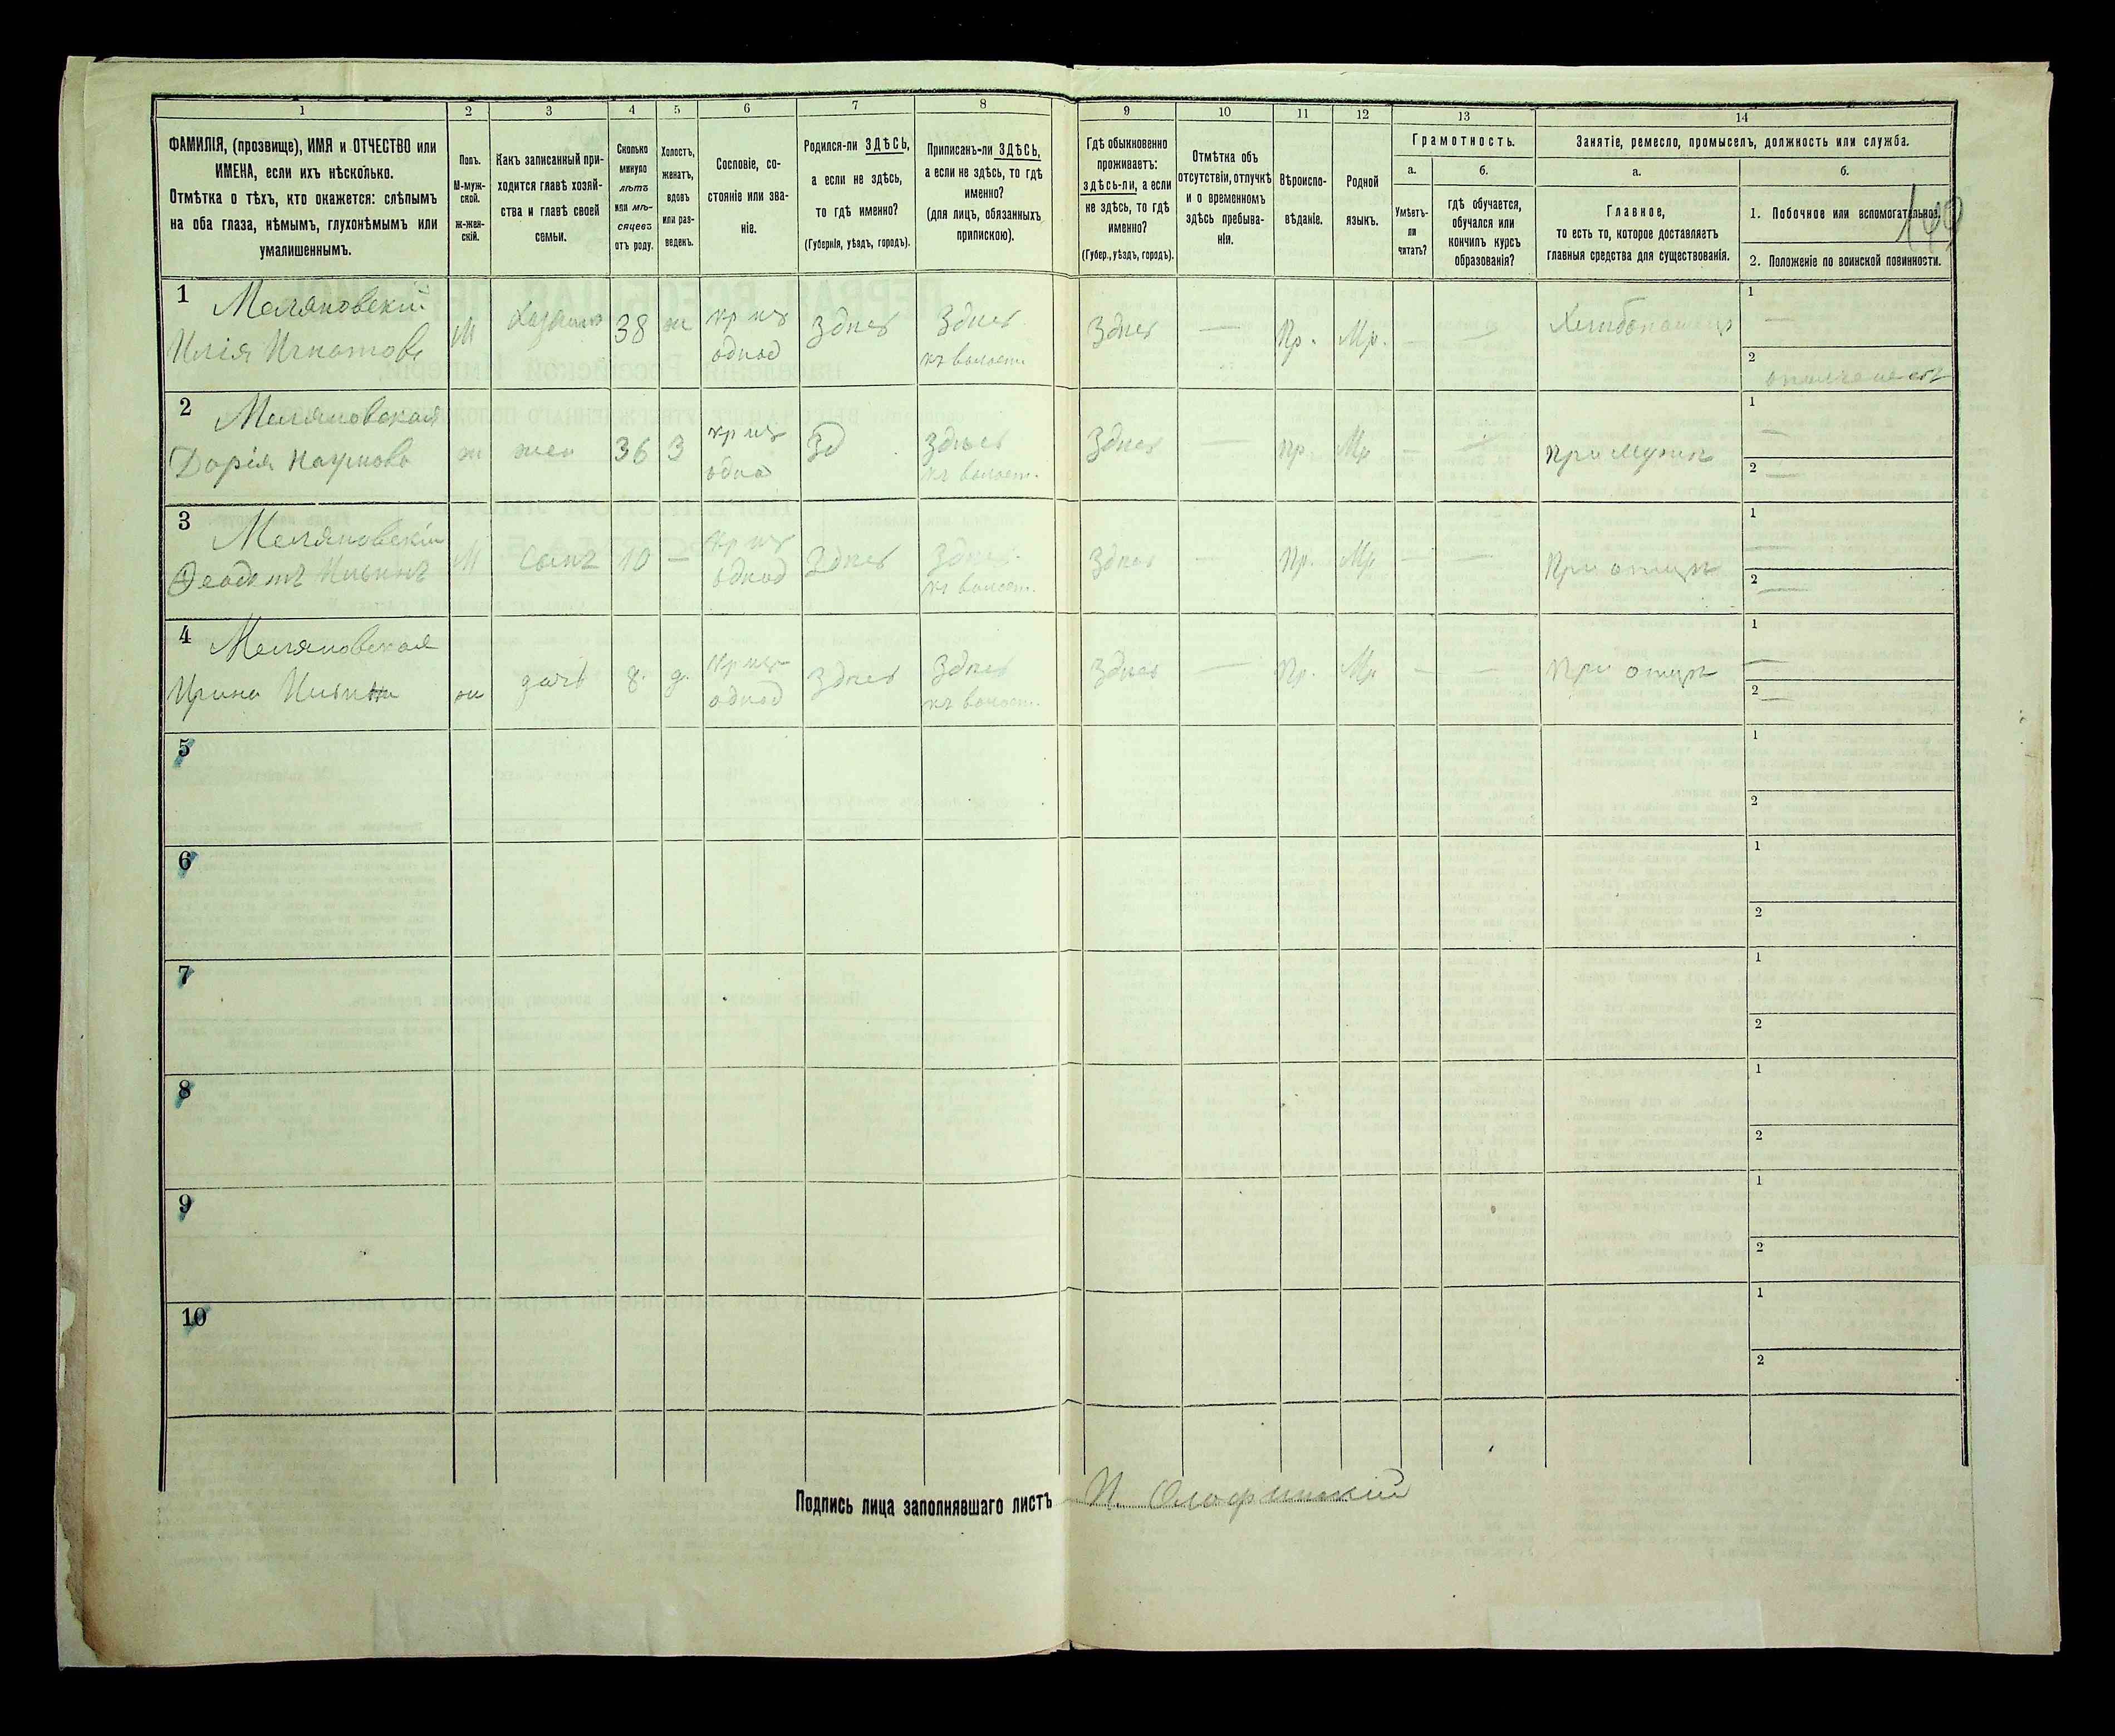 1 2 3 4 5 6 7 8 9 10 11 12 13 14
ФАМИЛІЯ, (прозвище), ИМЯ и ОТЧЕСТВО или
ИМЕНА, если ихъ нѣсколько.
Отмѣтка о тѣхъ, кто окажется: слѣпымъ
на оба глаза, нѣмымъ, глухонѣмымъ или
умалишеннымъ.
Полъ.
М-муж-
ской.
ж-жен-
скій.
Какъ записанный при-
ходится главѣ хозяй-
ства и главѣ своей
семьи.
Сколько
минуло
лѣтъ
или мѣ-
сяцевъ
отъ роду.
Холостъ,
женатъ,
вдовъ
или раз-
веденъ.
Сословіе, со-
стояніе или зва-
ніе.
Родился-ли ЗДѢСЬ,
а если не здѣсь,
то гдѣ именно?
(Губернія, уѣздъ, городъ).
Приписанъ-ли ЗДѢСЬ,
а если не здѣсь, то гдѣ
именно?
(для лицъ, обязанныхъ
припискою).
Гдѣ обыкновенно
проживаетъ:
здѣсь-ли, а если
не здѣсь, то гдѣ
именно?
(Губер., уѣздъ, городъ).
Отмѣтка объ
отсутствіи, отлучкѣ
и о временномъ
здѣсь пребыва-
ніи.
Вѣроиспо-
вѣданіе.
Родной
языкъ.
Грамотность.
а.
Умѣетъ-
ли
читать?
б.
гдѣ обучается,
обучался или
кончилъ курсъ
образованія?
Занятіе, ремесло, промыселъ, должность или служба.
а.
Главное,
то есть то, которое доставляетъ
главныя средства для существованія.
б.
1. Побочное или вспомогательное.
2. Положеніе по воинской повинности.
1 Меляновскій
Илія Игнатовъ
М
Хозяинъ
38
ж
кр из
однод
Здѣсь
Здѣсь
къ волост.
Здѣсь
—
Пр.
Мр.
—
1 —
2
2 Меляновская
Дарія Наумова
ж
жен
36
З
кр из
однод
Зд
Здѣсь
къ волост.
Здѣсь
—
Пр.
Мр
—
—
При мужѣ
1 —
2 —
3 Меляновскій
Феодотъ Ильинъ
М
Сынъ
10
—
Кр из
однод
Здѣсь
Здѣсь
къ волост.
Здѣсь
—
Пр.
Мр.
—
—
При отцѣ
1 —
2 —
4 Меляновская
Ирина Ильина
ж
дочь
8.
д.
Кр из
однод
Здѣсь
Здѣсь
къ волост.
Здѣсь
—
Пр.
Мр
—
—
При отцѣ
1 —
2 —
5
1
2
6
1
2
7
1
2
8
1
2
9
1
2
10
1
2
Подпись лица заполнявшаго листъ